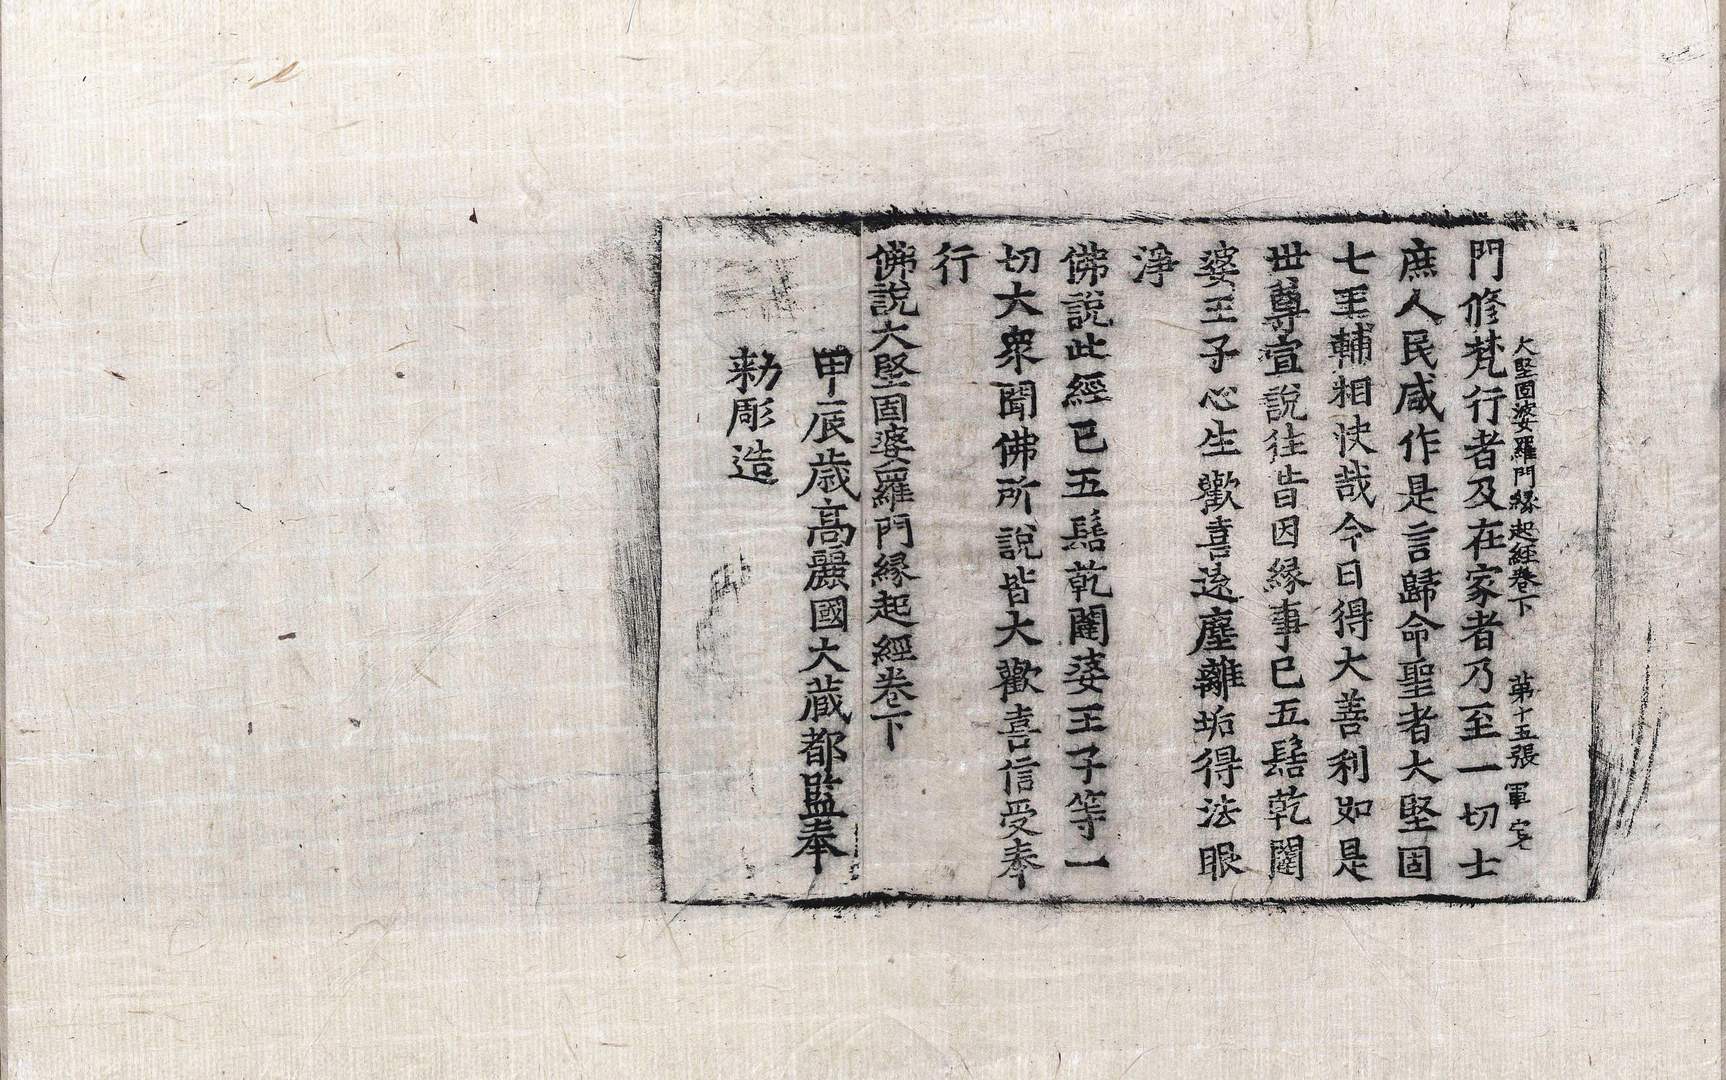 大堅固婆羅門縁起經卷下 第十五張 軍字
門修梵行者及在家者乃至一切士
庶人民咸作是言歸命聖者大堅固
七王輔相快哉今日得大善利如是
世尊宣說往昔因縁事已五髻乾闥
婆王子心生歡喜遠塵離垢得法眼
淨
佛說此經已五髻乾闥婆王子等一
切大衆聞佛所說皆大歡喜信受奉
行
佛說大堅固婆羅門縁起經卷下
甲辰歲高麗國大藏都監奉
勑彫造